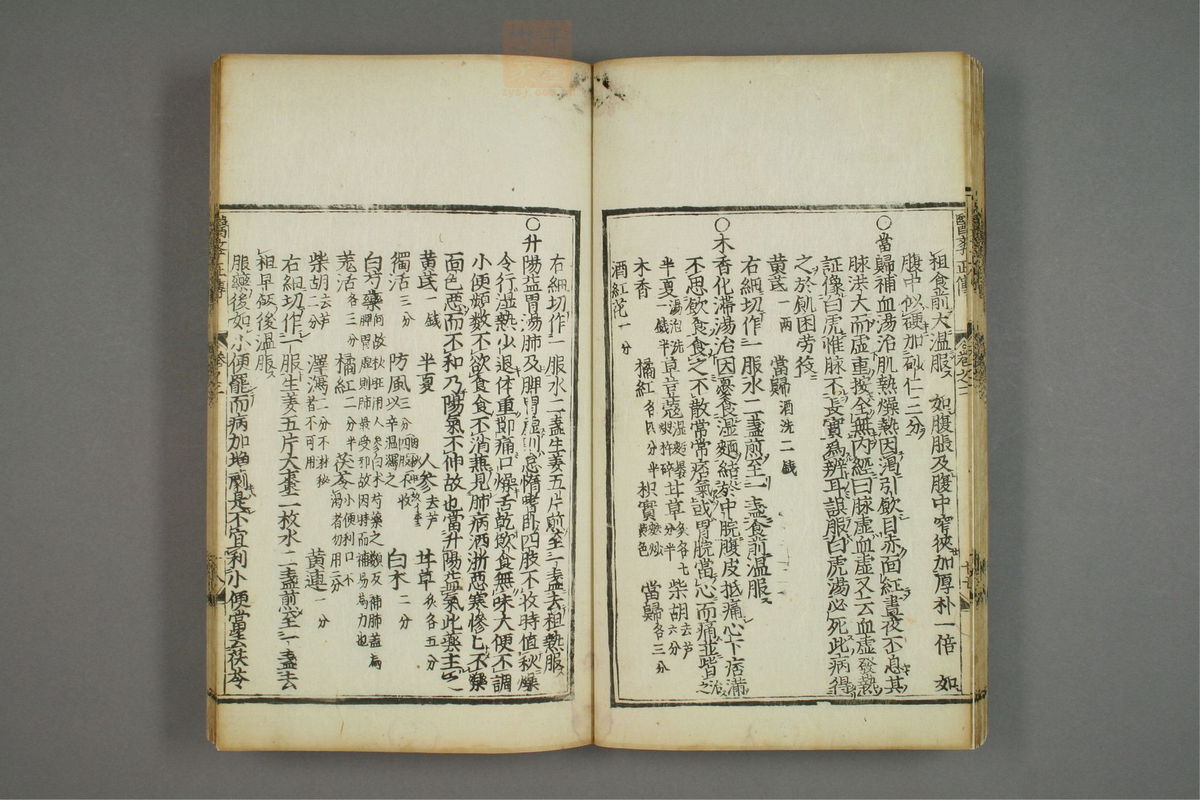 粗食前大温服 如腹脹及腹中窄狹加厚朴一倍 如
腹中似硬加砂仁三分
○當歸補血湯治肌熱燥熱因渴引飲目赤面紅晝夜不息其
脉洪大而虛重按全無內經曰脉虛血虛又云血虛發熱
証像白虎惟脉不長實爲辨耳誤服白虎湯必死此病得
之於飢困勞役
黄芪一兩 當歸酒洗二戔
右細切作一服水二盞煎至一盞食前温服
○木香化滯湯治因憂食湿麵結於中脘腹皮抵痛心下痞滿
不思飲食食之不散常常痞氣或胃脘當心而痛並皆治之
半夏湯泡洗一戔半 草豆蔻 甘草炙各七分半 柴胡去芦六分
木香 橘紅各三分半 枳實麩炒黄色 當歸各三分
酒紅花一分
右細切作一服水二盞生姜五片煎至一盞去粗熱服
○升陽益胃湯肺及脾胃虛則怠惰嗜卧四肢不收時值秋燥
令行湿熱少退体重節痛口燥舌乾飲食無味大便不調
小便頻數不欲食食不消兼見肺病洒淅惡寒慘慘不樂
面色惡而不和乃陽氣不伸故也當升陽益氣此藥主之
黄芪一戔 半夏 人參去芦 甘草炙各五分
獨活三分 防風三分以辛温瀉之 白朮二分
白芍藥何故秋旺用人參白朮芍藥之類反補肺盖爲脾胃虛則肺最受邪故因時而補易爲力也
羗活各三分 橘紅二分半 茯苓小便利口不渴者勿用二分
柴胡去芦二分 澤瀉二分不淋秘者不可用 黄連一分
右細切作一服生姜五片大棗二枚水二盞煎至一盞去
粗早飯後温服
服藥後如小便罷而病加增劇是不宜利小便當去茯苓
醫學正傳
卷之二